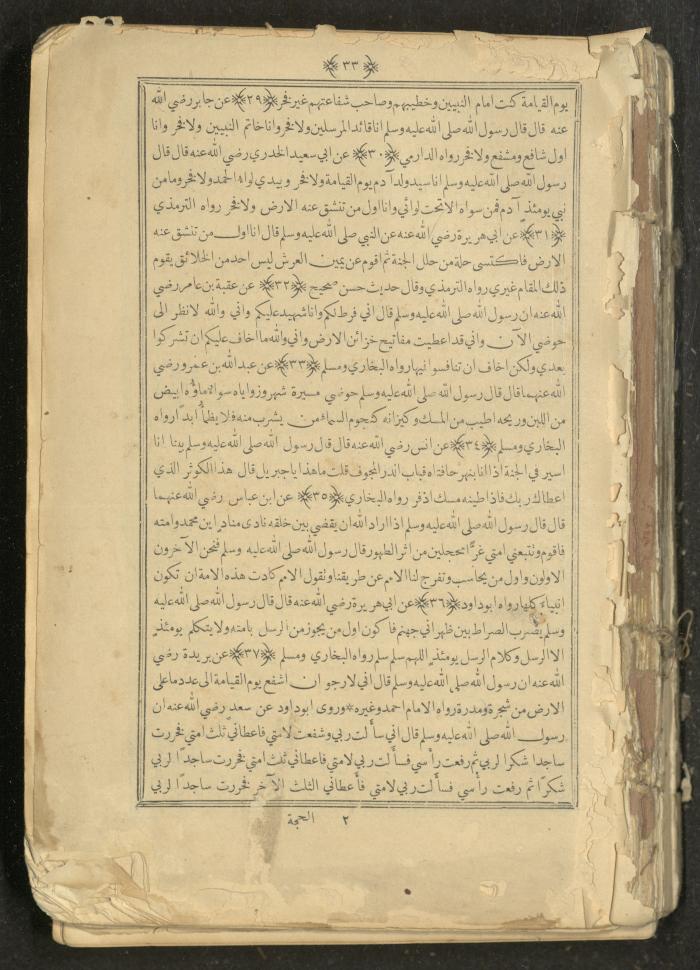 ﴿٣٣﴾
يوم القيامة كنت امام النبيين وخطيبهم وصاحب شفاعتهم غير فخر ﴿٢٩﴾ عن جابر رضي الله
عنه قال قال رسول الله صلى الله عليه وسلم انا قائد المرسلين ولا فخر وانا خاتم النبيين ولا فخر وانا
اول شافع ومشفع ولا فخر رواه الدارمي ﴿٣٠﴾ عن ابي سعيد الخدري رضي الله عنه قال قال
رسول الله صلى الله عليه وسلم انا سيد ولد آدم يوم القيامة ولا فخر وبيدي لواء الحمد ولا فخر وما من
نبي يومئذ آدم فمن سواه الا تحت لوائي وانا اول من تنشق عنه الارض ولا فخر رواه الترمذي
﴿٣١﴾ عن ابي هريرة رضي الله عنه عن النبي صلى الله عليه وسلم قال انا اول من تنشق عنه
الارض فاكتسى حلة من حلل الجنة ثم اقوم عن يمين العرش ليس احد من الخلائق يقوم
ذلك المقام غيري رواه الترمذي وقال حديث حسن صحيح ﴿٣٢﴾ عن عقبة بن عامر رضي
الله عنه ان رسول الله صلى الله عليه وسلم قال اني فرط لكم وانا شهيد عليكم واني والله لانظر الى
حوضي الآن واني قد اعطيت مفاتيح خزائن الارض واني والله ما اخاف عليكم ان تشركوا
بعدي ولكن اخاف ان تنافسوا فيها رواه البخاري ومسلم ﴿٣٣﴾ عن عبد الله بن عمرو رضي
الله عنهما قال قال رسول الله صلى الله عليه وسلم حوضي مسيرة شهر وزواياه سواء ماؤه ابيض
من اللبن وريحه اطيب من المسك وكيزانه كنجوم السماء من يشرب منه فلا يظمأ ابدًا رواه
البخاري ومسلم ﴿٣٤﴾ عن انس رضي الله عنه قال قال رسول الله صلى الله عليه وسلم بينا انا
اسير في الجنة اذا انا بنهر حافتاه قباب الدر المجوف قلت ما هذا يا جبريل قال هذا الكوثر الذي
اعطاك ربك فاذا طينه مسك اذفر رواه البخاري ﴿٣٥﴾ عن ابن عباس رضي الله عنهما
قال قال رسول الله صلى الله عليه وسلم اذا اراد الله ان يقضي بين خلقه نادى مناد اين محمد وامته
فاقوم وتتبعني امتي غرًّا محجلين من اثر الطهور قال رسول الله صلى الله عليه وسلم فنحن الآخرون
الاولون واول من يحاسب وتفرج لنا الامم عن طريقنا وتقول الامم كادت هذه الامة ان تكون
انبياء كلها رواه ابو داود ﴿٣٦﴾ عن ابي هريرة رضي الله عنه قال قال رسول الله صلى الله عليه
وسلم يضرب الصراط بين ظهراني جهنم فاكون اول من يجوز من الرسل بامته ولا يتكلم يومئذ
الا الرسل وكلام الرسل يومئذ اللهم سلم سلم رواه البخاري ومسلم ﴿٣٧﴾ عن بريدة رضي
الله عنه ان رسول الله صلى الله عليه وسلم قال اني لارجو ان اشفع يوم القيامة الى عدد ما على
الارض من شجرة ومدرة رواه الامام احمد وغيره * وروى ابو داود عن سعد رضي الله عنه ان
رسول الله صلى الله عليه وسلم قال اني سألت ربي وشفعت لامتي فاعطاني ثلث امتي فخررت
ساجدا شكرا لربي ثم رفعت رأسي فسألت ربي لامتي فاعطاني ثلث امتي فخررت ساجدًا لربي
شكرًا ثم رفعت رأسي فسألت ربي لامتي فأعطاني الثلث الآخر فخررت ساجدًا لربي
٢ الحجة